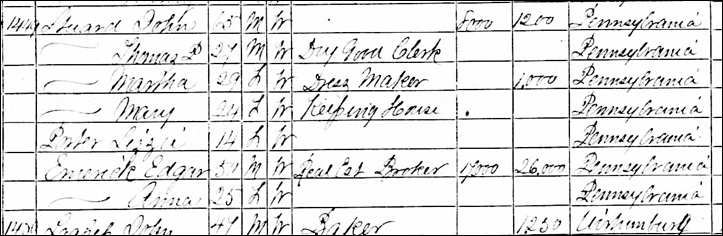 John 65 M W 8000 1200 Pennsylvania
Thomas P 27 M W Dry Good Clerk Pennsylvania
Martha 29 F W Dress Maker 1,000 Pennsylvania
Mary 24 F W Keeping House Pennsylvania
Porter Lizzie 14 F W Pennsylvania
Emerick Edgar 50 M W Real Est Broker 17000 26,000 Pennsylvania
Anna 25 F W Pennsylvania
John 47 M W Baker 1250